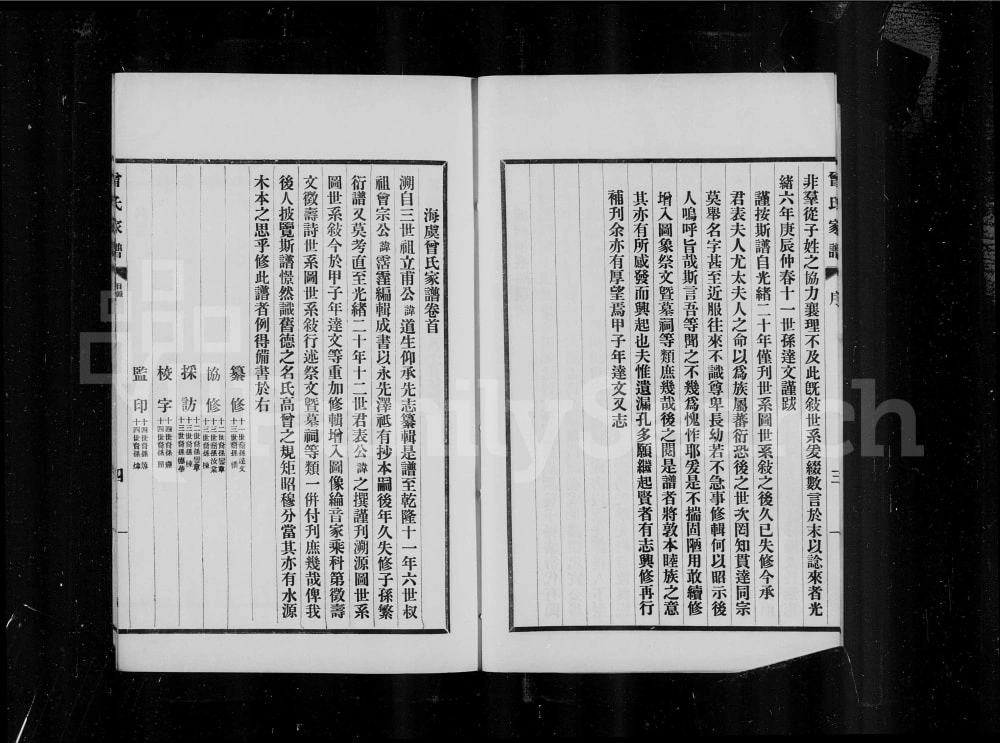 曾氏家譜 序 三
非羣從子姓之協力襄理不及此旣敍世系爰綴數言於末以諗來者光
緒六年庚辰仲春十一世孫達文謹跋
謹按斯譜自光緒二十年僅刊世系圖世系敍之後久已失修今承
君表夫人尤太夫人之命以爲族屬蕃衍恐後之世次罔知貫達同宗
莫舉名字甚至近服往來不識尊卑長幼若不急事修輯何以昭示後
人嗚呼旨哉斯言吾等聞之不幾爲愧怍耶爰是不揣固陋用敢續修
增入圖象祭文曁墓祠等類庶幾哉後之閱是譜者將敦本睦族之意
其亦有所感發而興起也夫惟遺漏孔多願繼起賢者有志興修再行
補刊余亦有厚望焉甲子年達文又志
海虞曾氏家譜卷首
溯自三世祖立甫公諱道生仰承先志纂輯是譜至乾隆十一年六世叔
祖曾宗公諱霑霪編輯成書以永先澤祗有抄本嗣後年久失修子孫繁
衍譜又莫考直至光緒二十年十二世君表公諱之撰謹刊溯源圖世系
圖世系敍今於甲子年達文等重加修輯增入圖像綸音家乘科第徵壽
文徵壽詩世系圖世系敍行述祭文曁墓祠等類一併付刊庶幾哉俾我
後人披覽斯譜憬然識舊德之名氏高曾之規矩昭穆分當其亦有水源
木本之思乎修此譜者例得備書於右
纂修 十一世裔孫達文 十三世裔孫
協修 十二世裔孫 十三世裔孫 十三世裔孫
採訪 十二世裔孫 十三世裔孫 十三世裔孫
校字 十四世裔孫 十四世裔孫
監印 十四世裔孫 十四世裔孫
曾氏家譜 四
FamilySearch